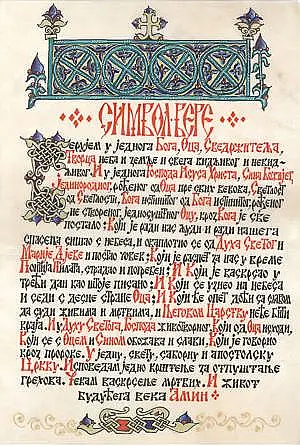 СИМВОЛ ВЕРЕ
Верујем у једнога Бога, Оца, Сведржитеља,
Творца неба и земље и свега видљивог и невид-
љивог. И у једнога Господа Исуса Христа, Сина Божијег,
Јединородног, рођеног од Оца пре свих векова; Светлост
од Светлости, Бога истинитог од Бога истинитог, рођеног
не створеног, једносушног Оцу, кроз Кога је све
постало; Који је ради нас људи и ради нашега
спасења сишао с небеса, и оваплотио се од Духа Светог и
Марије Дјеве и постао човек; Који је распет за нас у време
Понтија Пилата, страдао и погребен; И Који је васкрсао у
трећи дан као што је писано; И Који се узнео на небеса
и седи с десне стране Оца; И Који ће опет доћи са славом
да суди живима и мртвима, и Његовом Царству неће бити
краја. И у Духу Светога, Господа животворног, Који од Оца исходи,
Који се с Оцем и Сином обожава и слави, Који је говорио
кроз пророке. У једну, свету, саборну и апостолску
Цркву. Исповедам једно крштење за отпуштање
грехова. Чекам васкрсење мртвих. И живот
будућега века Амин